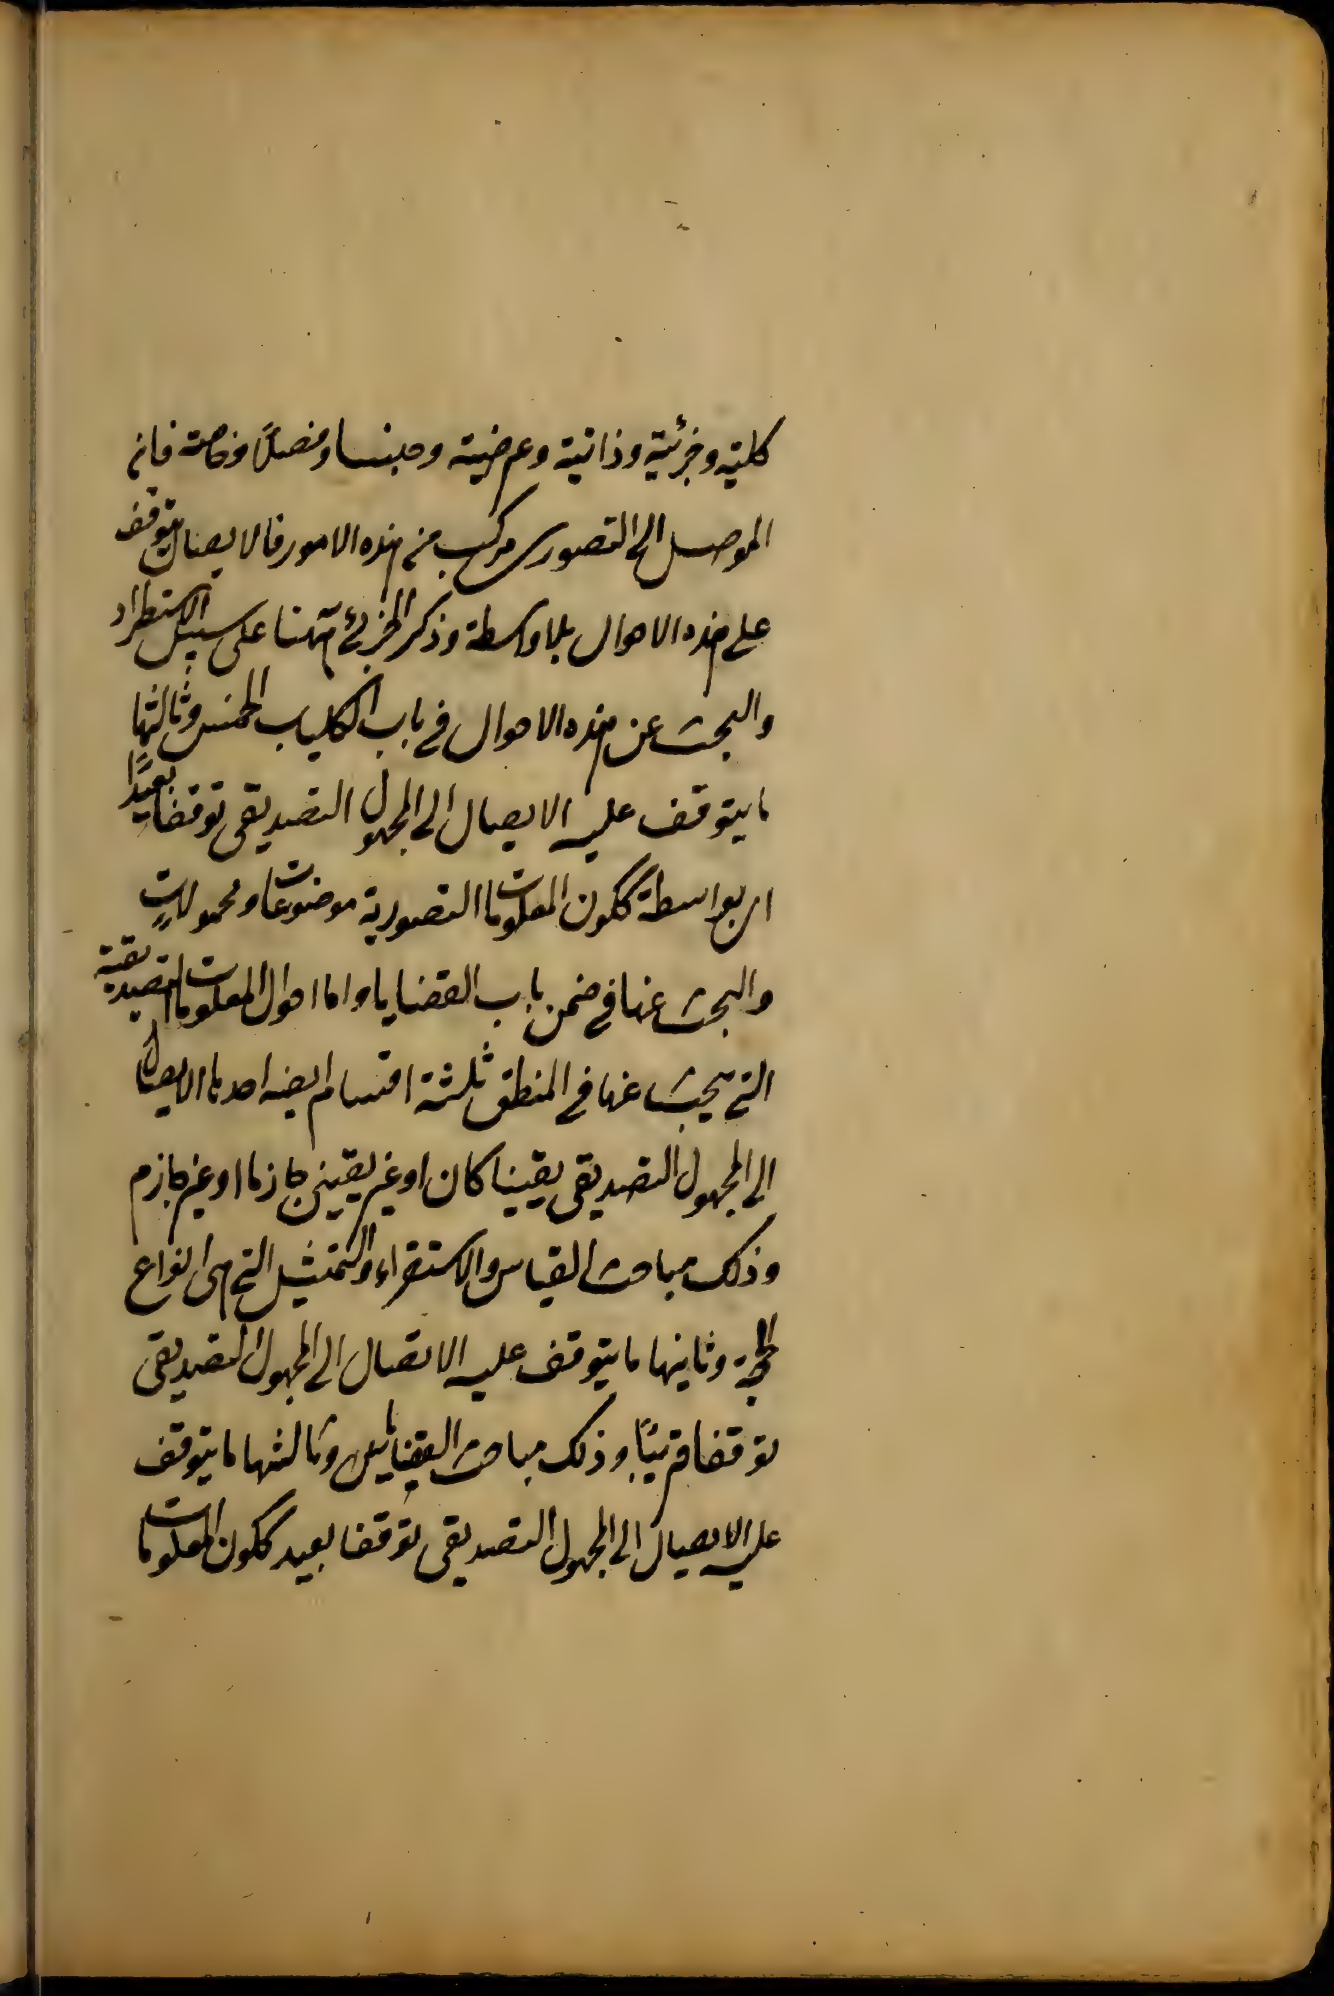 كلية وجزئية وذاتية وعرضية وجنسا وفصلاً وخاصة فان
الموصل الى التصورى مركب من هذه الامور فالايصال يتوقف
على هذه الاحوال بلا واسطة وذكر الجزئى ههنا على سبيل الاستطراد
والبحث عن هذه الاحوال فى باب الكليات الخمس وثالثها
ما يتوقف عليه الايصال الى المجهول التصديقى توقفا بعيدًا
اى بواسطة ككون المعلومات التصورية موضوعات ومحمولاتٍ
والبحث عنها فى ضمن باب القضايا واما احوال المعلومات التصديقية
التى يبحث عنها فى المنطق ثلثة اقسام ايضا احدها الايصال
الى المجهول التصديقى يقينيا كان او غير يقينى جازما او غير جازم
وذلك مباحث القياس والاستقراء والتمثيل التى هى انواع
الحجة وثانيها ما يتوقف عليه الاتصال الى المجهول التصديقى
توقفا قريبًا وذلك مباحث القضايا وثالثها ما يتوقف
عليه الايصال الى المجهول التصديقى توقفا بعيد ككون المعلومات